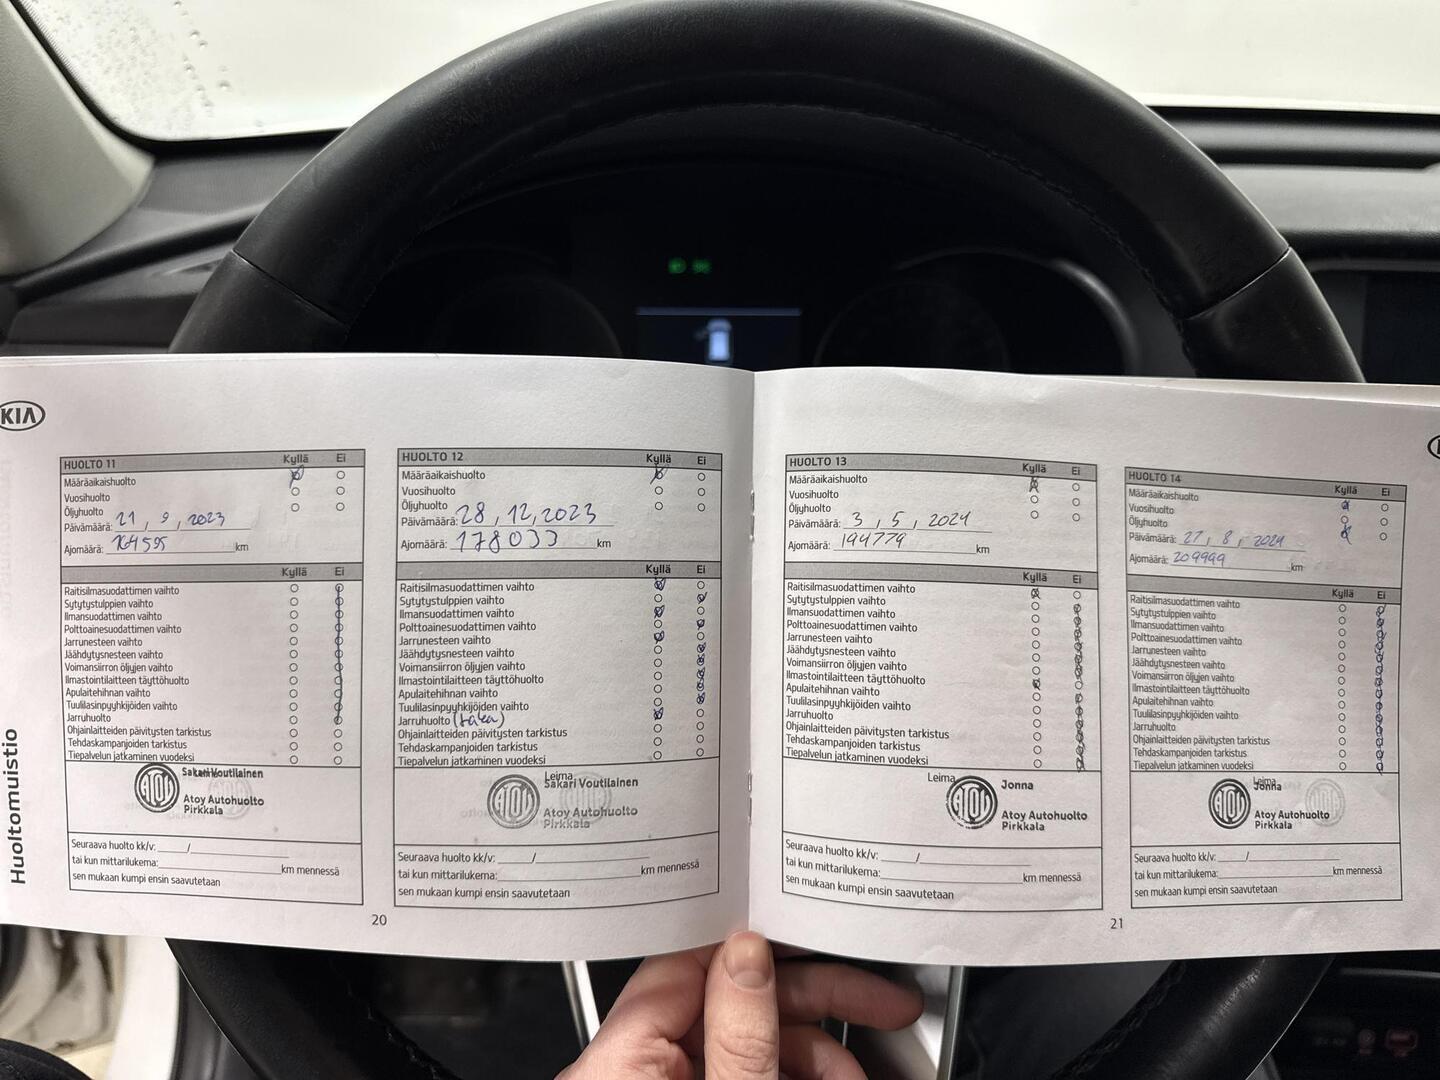 KIA
Huoltomuistio
HUOLTO 11 Kyllä Ei
Määräaikaishuolto
Vuosihuolto
Öljyhuolto
Päivämäärä: 21, 9, 2023
Ajomäärä: 164595 km
Kyllä Ei
Raitisilmasuodattimen vaihto
Sytytystulppien vaihto
Ilmansuodattimen vaihto
Polttoainesuodattimen vaihto
Jarrunesteen vaihto
Jäähdytysnesteen vaihto
Voimansiirron öljyjen vaihto
Ilmastointilaitteen täyttöhuolto
Apulaitehihnan vaihto
Tuulilasinpyyhkijöiden vaihto
Jarruhuolto
Ohjainlaitteiden päivitysten tarkistus
Tehdaskampanjoiden tarkistus
Tiepalvelun jatkaminen vuodeksi
Sakari Voutilainen
ATOY
Atoy Autohuolto
Pirkkala
Seuraava huolto kk/v: /
tai kun mittarilukema: km mennessä
sen mukaan kumpi ensin saavutetaan
20
HUOLTO 12 Kyllä Ei
Määräaikaishuolto
Vuosihuolto
Öljyhuolto
Päivämäärä: 28, 12, 2023
Ajomäärä: 178033 km
Kyllä Ei
Raitisilmasuodattimen vaihto
Sytytystulppien vaihto
Ilmansuodattimen vaihto
Polttoainesuodattimen vaihto
Jarrunesteen vaihto
Jäähdytysnesteen vaihto
Voimansiirron öljyjen vaihto
Ilmastointilaitteen täyttöhuolto
Apulaitehihnan vaihto
Tuulilasinpyyhkijöiden vaihto
Jarruhuolto (taka)
Ohjainlaitteiden päivitysten tarkistus
Tehdaskampanjoiden tarkistus
Tiepalvelun jatkaminen vuodeksi
Leima
Sakari Voutilainen
ATOY
Atoy Autohuolto
Pirkkala
Seuraava huolto kk/v: /
tai kun mittarilukema: km mennessä
sen mukaan kumpi ensin saavutetaan
HUOLTO 13 Kyllä Ei
Määräaikaishuolto
Vuosihuolto
Öljyhuolto
Päivämäärä: 3, 5, 2024
Ajomäärä: 194779 km
Kyllä Ei
Raitisilmasuodattimen vaihto
Sytytystulppien vaihto
Ilmansuodattimen vaihto
Polttoainesuodattimen vaihto
Jarrunesteen vaihto
Jäähdytysnesteen vaihto
Voimansiirron öljyjen vaihto
Ilmastointilaitteen täyttöhuolto
Apulaitehihnan vaihto
Tuulilasinpyyhkijöiden vaihto
Jarruhuolto
Ohjainlaitteiden päivitysten tarkistus
Tehdaskampanjoiden tarkistus
Tiepalvelun jatkaminen vuodeksi
Leima
Jonna
ATOY
Atoy Autohuolto
Pirkkala
Seuraava huolto kk/v: /
tai kun mittarilukema: km mennessä
sen mukaan kumpi ensin saavutetaan
HUOLTO 14 Kyllä Ei
Määräaikaishuolto
Vuosihuolto
Öljyhuolto
Päivämäärä: 27, 8, 2024
Ajomäärä: 209999 km
Kyllä Ei
Raitisilmasuodattimen vaihto
Sytytystulppien vaihto
Ilmansuodattimen vaihto
Polttoainesuodattimen vaihto
Jarrunesteen vaihto
Jäähdytysnesteen vaihto
Voimansiirron öljyjen vaihto
Ilmastointilaitteen täyttöhuolto
Apulaitehihnan vaihto
Tuulilasinpyyhkijöiden vaihto
Jarruhuolto
Ohjainlaitteiden päivitysten tarkistus
Tehdaskampanjoiden tarkistus
Tiepalvelun jatkaminen vuodeksi
Leima
Jonna
ATOY
Atoy Autohuolto
Pirkkala
Seuraava huolto kk/v: /
tai kun mittarilukema: km mennessä
sen mukaan kumpi ensin saavutetaan
21